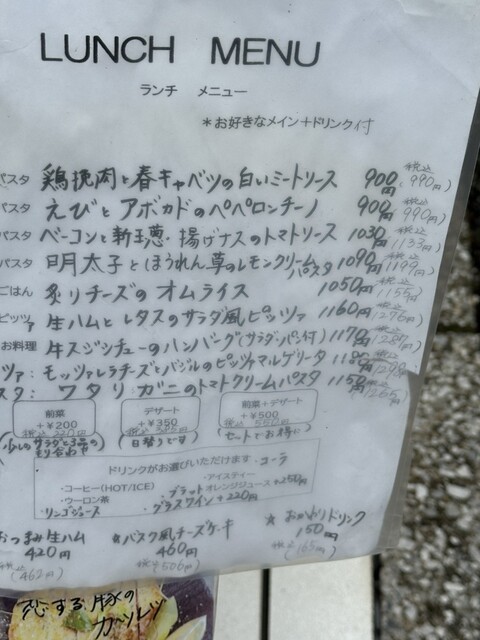 LUNCH MENU
ランチ メニュー
＊お好きなメイン＋ドリンク付
パスタ 鶏挽肉と春キャベツの白いミートソース 900円 税込(990円)
パスタ えびとアボカドのペペロンチーノ 900円 税込(990円)
パスタ ベーコンと新玉葱・揚げナスのトマトソース 1030円 税込(1133円)
パスタ 明太子とほうれん草のレモンクリームパスタ 1090円 税込(1199円)
ごはん 炙りチーズのオムライス 1050円 税込(1155円)
ピッツァ 生ハムとレタスのサラダ風ピッツァ 1160円 税込(1276円)
お料理 牛スジシチューのハンバーグ(サラダ・パン付) 1170円 税込
ツァ: モッツァレラチーズとバジルのピッツァマルゲリータ
スタ: ワタリガニのトマトクリームパスタ 1150円 税込(1265円)
前菜 ＋￥200 税込220円
デザート ＋￥350 税込385円
前菜＋デザート ＋￥500 税込550円
日替りです
セットでお得に
ドリンクがお選びいただけます ・コーラ
・コーヒー(HOT/ICE) ・アイスティー
・ウーロン茶 ・ブラッドオレンジジュース+250円
・リンゴジュース ・グラスワイン+220円
おつまみ生ハム 420円 (462円)
＊バスク風チーズケーキ 460円 税込(506円)
＊おかわりドリンク 150円 税込(165円)
恋する豚のカツレツ